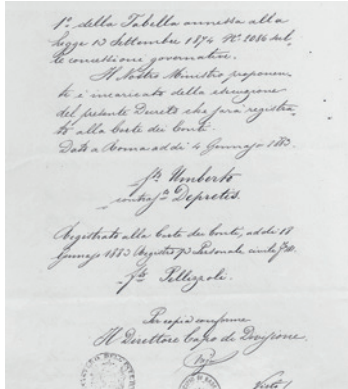 1º. della Tabella annessa alla
legge 13 Settembre 1874 Nº. 2086 sul-
le concessioni governative.
Il Nostro Ministro proponen-
te è incaricato della esecuzione
del presente Decreto che sarà registra-
to alla Corte dei Conti.
Dato a Roma addì 4 Gennajo 1883.
fto Umberto
controfto Depretis.
Registrato alla Corte dei Conti, addì 18
Gennajo 1883 Registro Personale civile
fto Pellizzoli.
Per copia conforme
Il Direttore Capo di Divisione
Visto